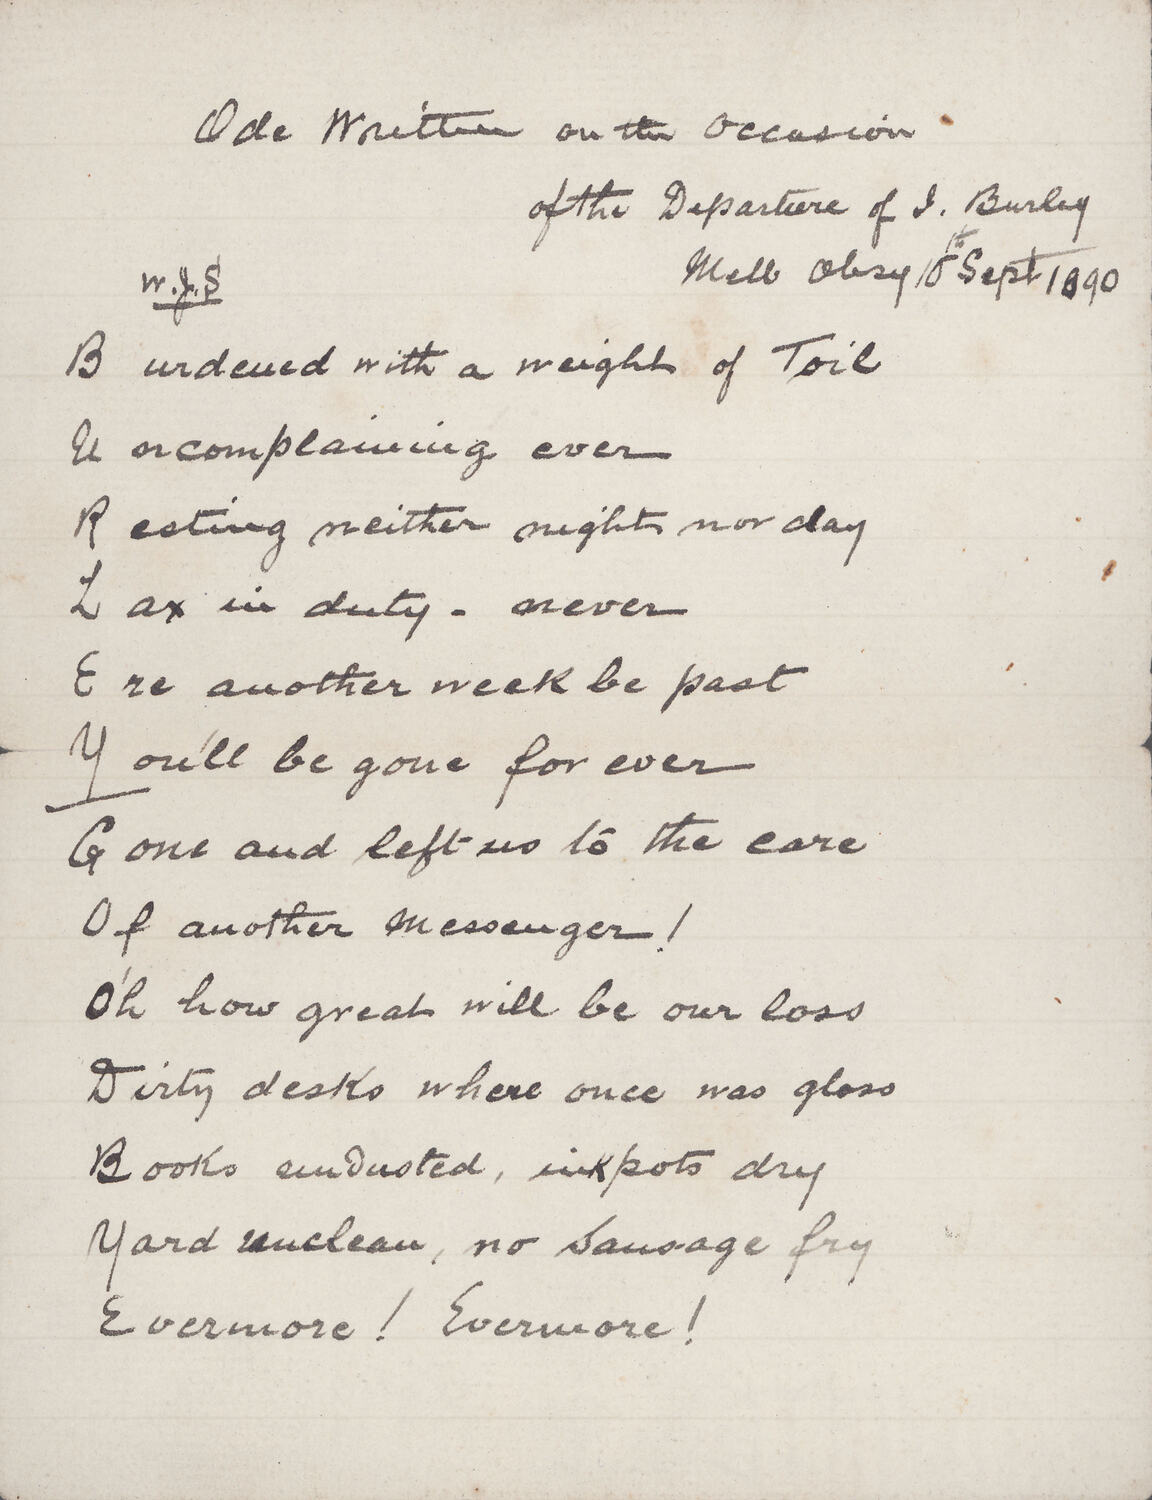 Ode Written on the Occasion
of the Departure of J. Burley
Melb Obsy 18th Sept 1890
W.J.S
Burdened with a weight of Toil
Uncomplaining ever
Resting neither night nor day
Lax in duty - never
Ere another week be past
You'll be gone for ever
Gone and left us to the care
Of another Messenger!
Oh how great will be our loss
Dirty desks where once was gloss
Books undusted, inkpots dry
Yard unclean, no sausage fry
Evermore! Evermore!